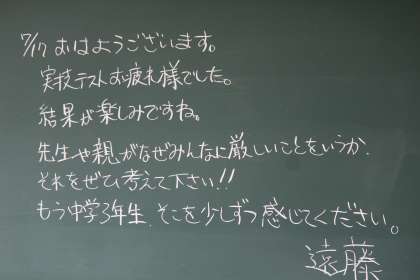 7/17 おはようございます。
実技テストお疲れ様でした。
結果が楽しみですね。
先生や親がなぜみんなに厳しいことをいうか、
それをぜひ考えて下さい!!
もう中学3年生、そこを少しずつ感じてください。
遠藤